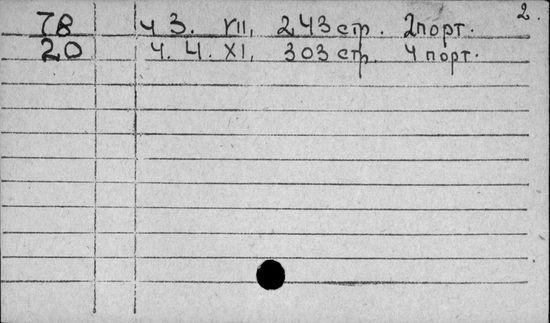 2.
78 ч 3. VII, 243 стр. 2 порт.
20 ч. 4. XI, 303 стр. 4 порт.